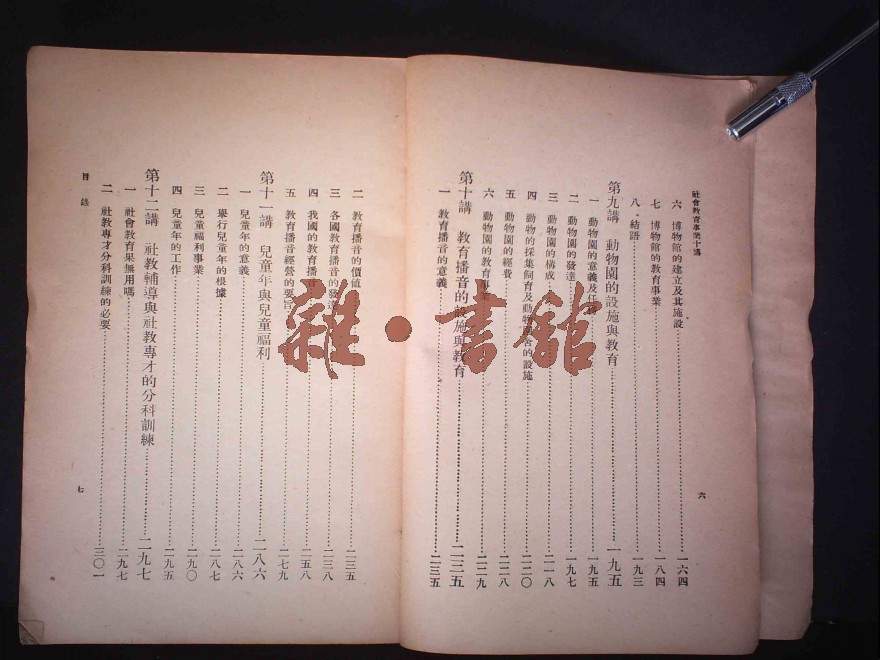 社會教育事業十講
六 博物館的建立及其施設……一六四
七 博物館的教育事業……一八四
八 結語……一九三
第九講 動物園的設施與教育……一九五
一 動物園的意義及任務……一九五
二 動物園的發達……一九七
三 動物園的構成……二一八
四 動物的採集飼育及動物 舍的設施……二二〇
五 動物園的經費……二二八
六 動物園的教育事業……二二九
第十講 教育播音的設施與教育……二三五
一 教育播音的意義……二三五
六
二 教育播音的價值……二三五
三 各國教育播音的發達……二三八
四 我國的教育播音……二五八
五 教育播音經營的要旨……二七九
第十一講 兒童年與兒童福利……二八六
一 兒童年的意義……二八六
二 舉行兒童年的根據……二八七
三 兒童福利事業……二九〇
四 兒童年的工作……二九五
第十二講 社教輔導與社教專才的分科訓練……二九七
一 社會教育果無用嗎……二九七
二 社教專才分科訓練的必要……三〇一
目錄
七
雜·書館